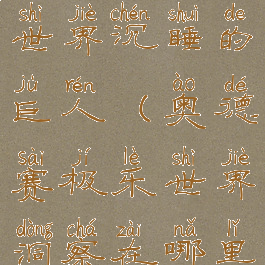 shì jiè chén shuì de
世界沉睡的
jù rén ào dé
巨人(奥德
sài jí lè shì jiè
赛极乐世界
dòng chá zài nǎ lǐ
洞察在哪里